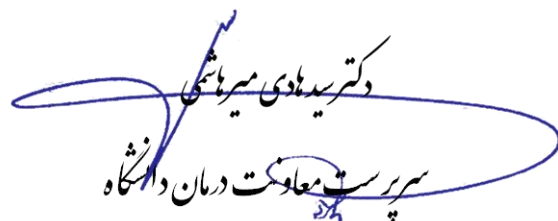 دکتر سید هادی میرهاشمی
سرپرست معاونت درمان دانشگاه